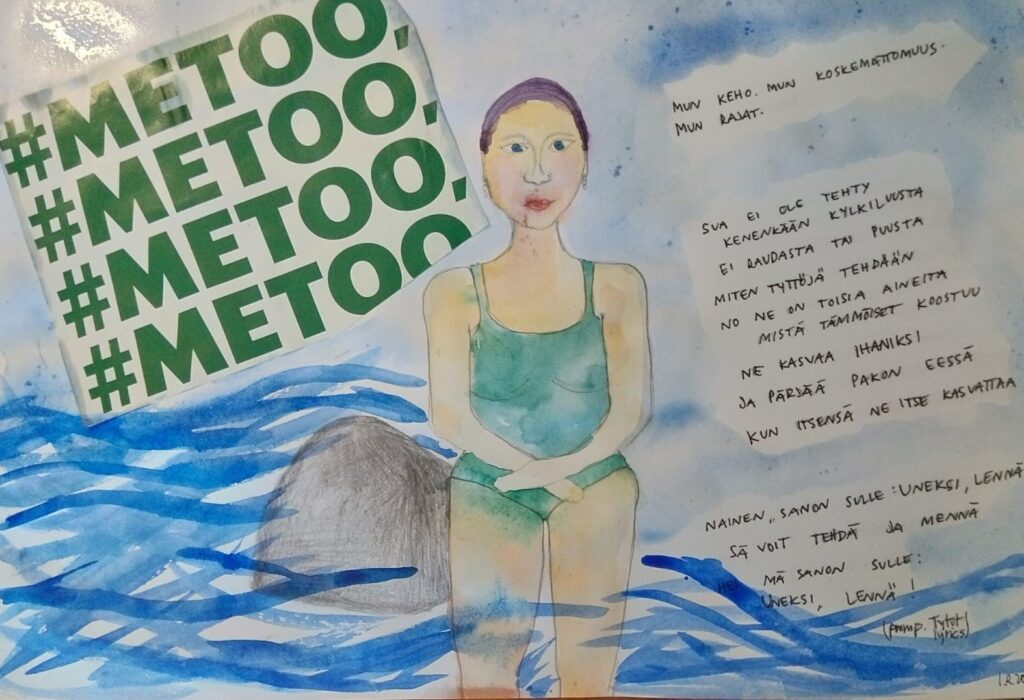 #METOO,
#METOO,
#METOO,
#METOO
MUN KEHO. MUN KOSKEMATTOMUUS.
MUN RAJAT.
SUA EI OLE TEHTY
KENENKÄÄN KYLKILUUSTA
EI RAUDASTA TAI PUUSTA
MITEN TYTTÖJÄ TEHDÄÄN
NO NE ON TOISIA AINEITA
MISTÄ TÄMMÖISET KOOSTUU
NE KASVAA IHANIKSI
JA PÄRJÄÄ PAKON EESSÄ
KUN ITSENSÄ NE ITSE KASVATTAA
NAINEN, SANON SULLE: UNEKSI, LENNÄ
SÄ VOIT TEHDÄ JA MENNÄ
HEI MÄ SANON SULLE:
UNEKSI, LENNÄ!
(pmmp. Tytöt lyrics)